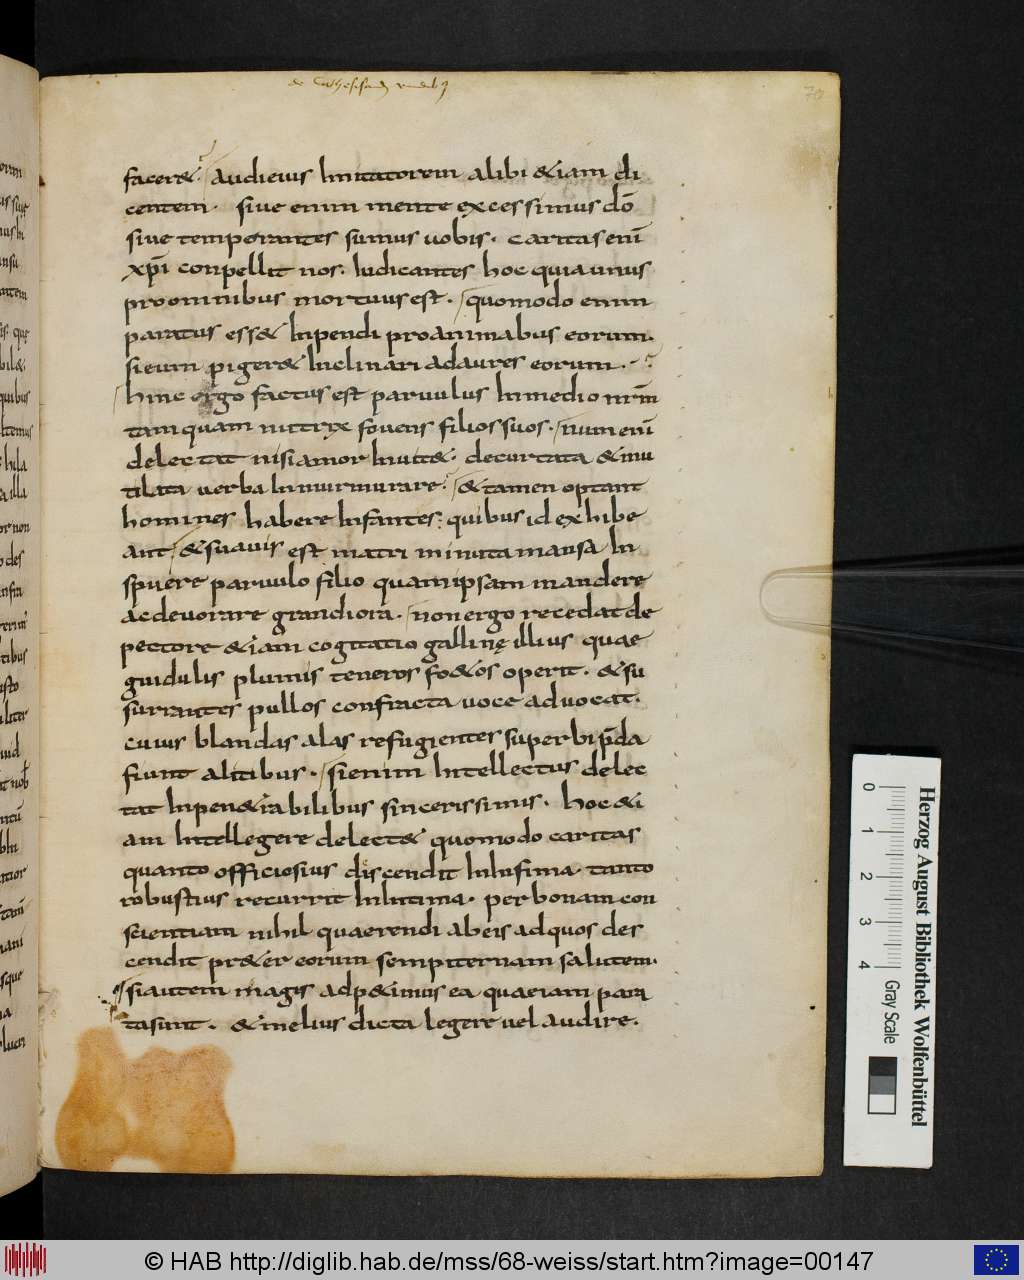 70
facer&. audiemus Imitatorem alibi &iam di
centem. siue enim mente excessimus dō
siue temperantes sumus uobis. caritas enī
xp̄i conpellit nos. Iudicantes hoc quia unus
pro omnibus mortuus est. quomodo enim
paratus ess& Inpendi pro animabus eorum.
si eum piger& Inclinari ad aures eorum.
hinc ergo factus est paruulus In medio nr̄m
tamquam nutrix fouens filios suos. num enī
delectat nisi amor Inuit&. decurtata & mu
tilata uerba Inmurmurare. & tamen optant
homines habere Infantes. quibus id exhibe
ant & suauis est matri minuta mansa In
spuere paruulo filio quam ipsam mandere
ac deuorare grandiora. non ergo recedat de
pectore &iam cogitatio gallinę illius quae
guidulis plumis teneros fo&os operit. & su
surrantes pullos confracta uoce aduocat.
cuius blandas alas refugientes superbi p̄da
fiunt alitibus. si enim Intellectus delec
tat Inpen&rabilibus sincerissimus. hoc &i
am Intellegere delect& quomodo caritas
quanto officiosius discendit In Infima tanto
robustius recurrit In Intima. per bonam con
scientiam nihil quaerendi ab eis ad quos des
cendit pr&er eorum sempiternam salutem.
si autem magis adp&imus ea quae iam para
ta sunt. & melius dicta legere uel audire.
0 1 2 3 4
Gray Scale
Herzog August Bibliothek Wolfenbüttel
© HAB http://diglib.hab.de/mss/68-weiss/start.htm?image=00147